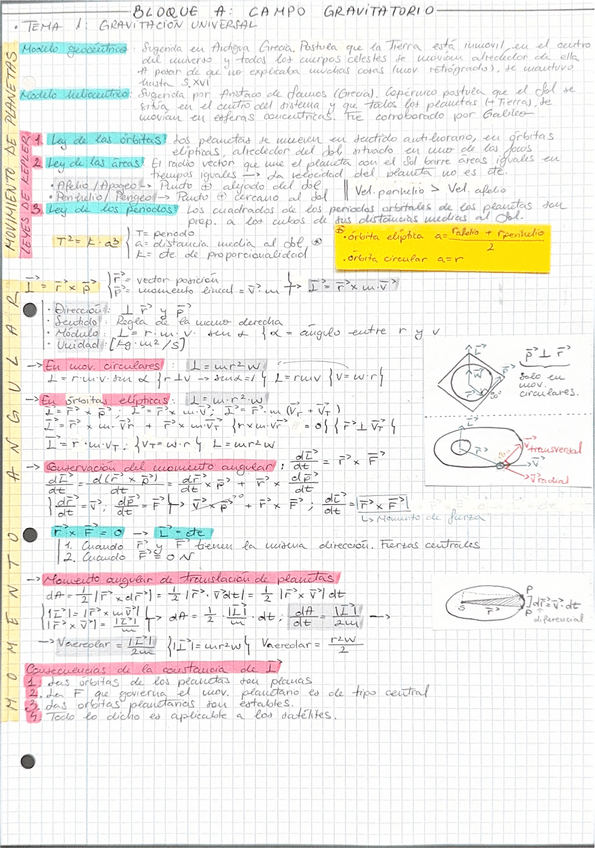 BLOQUE A: CAMPO GRAVITATORIO
· TEMA 1: GRAVITACIÓN UNIVERSAL
MOVIMIENTO DE PLANETAS
Modelo geocéntrico: Sugerida en Antigua Grecia. Postula que la Tierra está inmóvil, en el centro
del universo y todos los cuerpos celestes se mueven alrededor de ella
A pesar de que no explicaba muchas cosas (mov. retrógrados), se mantuvo
hasta S. XVI
Modelo heliocéntrico: Sugerida por Aristarco de Samos (Grecia). Copérnico postula que el Sol se
sitúa en el centro del sistema y que todos los planetas (+ Tierra), se
movían en esferas concéntricas. Fue corroborado por Galileo
LEYES DE KEPLER
1. Ley de las órbitas: Los planetas se mueven en sentido antihorario, en órbitas
elípticas, alrededor del Sol situado en uno de los focos
2. Ley de las áreas: El radio vector que une el planeta con el Sol barre áreas iguales en
tiempos iguales → La velocidad del planeta no es cte.
· Afelio / Apogeo → Punto ⊕ alejado del Sol
· Perihelio / Perigeo → Punto ⊕ cercano al Sol
Vel. perihelio > Vel. afelio
3. Ley de los periodos: Los cuadrados de los periodos orbitales de los planetas son
prop. a los cubos de sus distancias medias al Sol.
T² = k · a³
T = periodo
a = distancia media al Sol ⊛
k = cte de proporcionalidad
⊛ · órbita elíptica a = (r afelio + r perihelio) / 2
· órbita circular a = r
MOMENTO ANGULAR
L⃗ = r⃗ × p⃗ { r⃗ = vector posición
p⃗ = momento lineal = v⃗ · m } → L⃗ = r⃗ × m · v⃗
· Dirección: ⊥ r⃗ y p⃗
· Sentido: Regla de la mano derecha
· Módulo: L = r · m · v · sen α { α = ángulo entre r y v
· Unidad: [kg · m² / s]
→ En mov. circulares: L = mr²w
L = r · m · v · sen α { r ⊥ v → sen α = 1 } L = rmv { v = w · r }
→ En órbitas elípticas: L = m · r² · w
L⃗ = r⃗ × p⃗ ; L⃗ = r⃗ × m · v⃗ ; L⃗ = r⃗ · m (v⃗r + v⃗T)
L⃗ = r⃗ × m · v⃗r + r⃗ × m · v⃗T { r × m · v⃗r = 0 } { r⃗ ⊥ v⃗T }
L⃗ = r · m · vT · { vT = w · r } L = mr²w
p⃗ ⊥ r⃗
solo en
mov.
circulares.
v⃗ transversal
v⃗
v⃗ radial
→ Conservación del momento angular: dL⃗/dt = r⃗ × F⃗
dL⃗/dt = d(r⃗ × p⃗)/dt = dr⃗/dt × p⃗ + r⃗ × dp⃗/dt
{ dr⃗/dt = v⃗ ; dp⃗/dt = F⃗ } → v⃗ × p⃗ ⁰ + r⃗ × F⃗ ; dL⃗/dt = r⃗ × F⃗
↳ Momento de fuerza
r⃗ × F⃗ = 0 → L⃗ = cte
1. Cuando r⃗ y F⃗ tienen la misma dirección. Fuerzas centrales
2. Cuando F⃗ = 0 N
→ Momento angular de translación de planetas
dA = 1/2 |r⃗ × dr⃗| = 1/2 |r⃗ · v⃗ dt| = 1/2 |r⃗ × v⃗| dt
{ |L⃗| = |r⃗ × mv⃗|
|r⃗ × v⃗| = |L⃗|/m } → dA = 1/2 · |L⃗|/m · dt ; dA/dt = |L⃗|/2m →
→ Vareolar = |L⃗|/2m { |L⃗| = mr²w } Vareolar = r²w/2
S r⃗ P
dr⃗ = v⃗ · dt
P
diferencial
Consecuencias de la constancia de L⃗
1. Las órbitas de los planetas son planas
2. La F que govierna el mov. planetario es de tipo central
3. Las orbitas planetarias son estables.
4. Todo lo dicho es aplicable a los satélites.